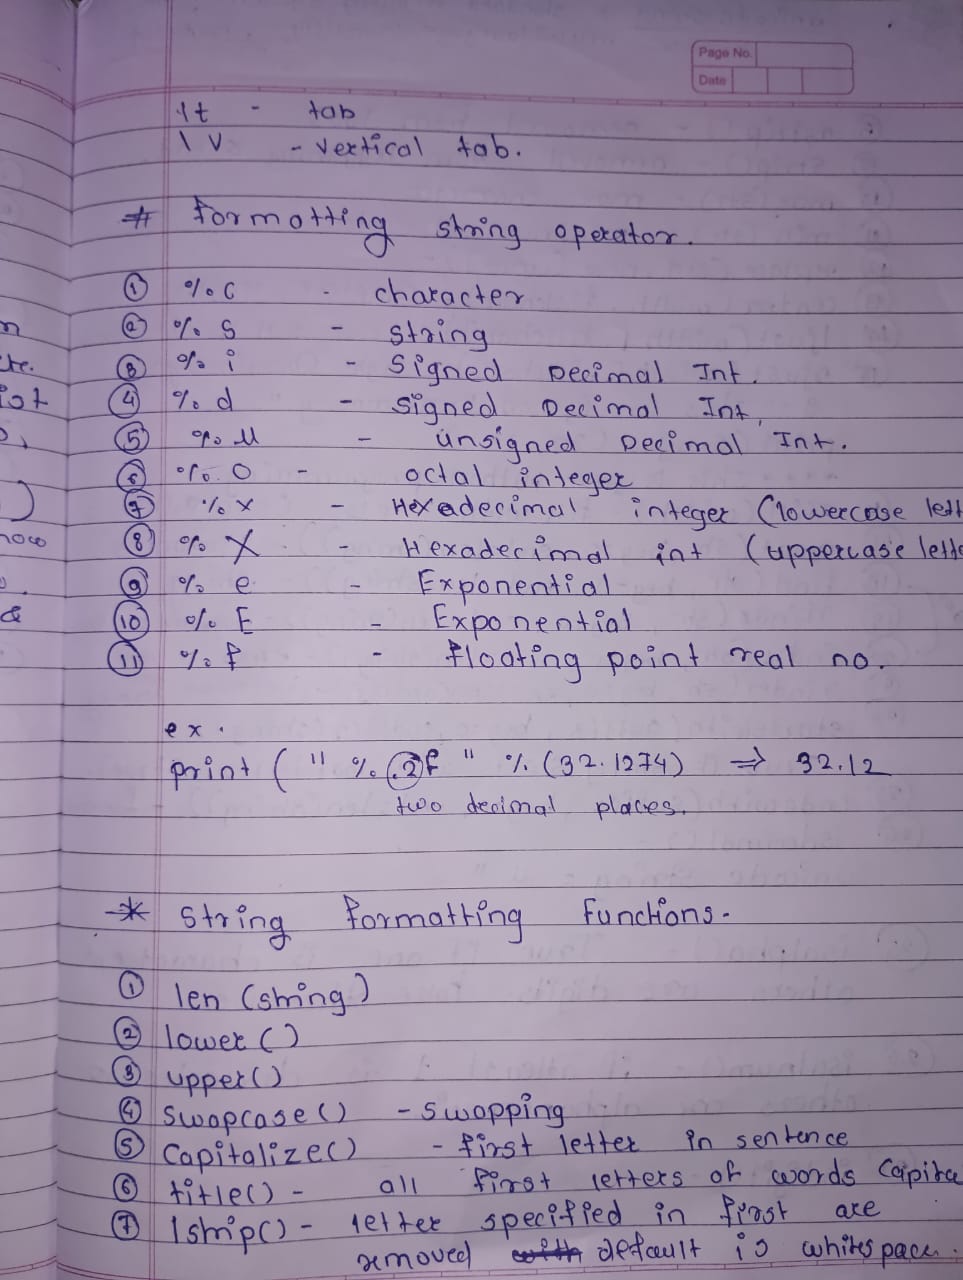 Page No.
Date
\t - tab
\v - vertical tab.
# Formatting string operator.
① %c - character
② %s - string
③ %i - signed Decimal Int.
④ %d - signed Decimal Int,
⑤ %u - unsigned Decimal Int.
⑥ %o - octal integer
⑦ %x - Hexadecimal integer (lowercase lett
⑧ %X - Hexadecimal int (uppercase lette
⑨ %e - Exponential
⑩ %E - Exponential
⑪ %f - floating point real no.
ex.
print ( " %.2f " % (32.1274) ⇒ 32.12
two decimal places.
* String formatting functions.
① len (string)
② lower ()
③ upper()
④ swapcase() - swapping
⑤ Capitalize() - first letter in sentence
⑥ title() - all first letters of words Capita
⑦ lstrip() - letter specified in first are
removed default is whitespace.